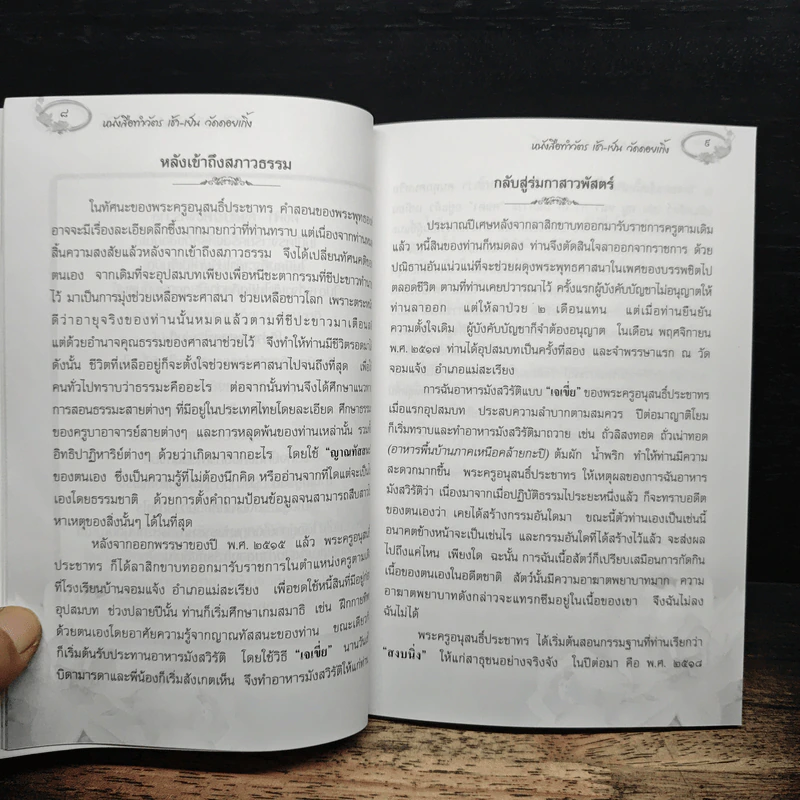 ๘
หนังสือทำวัตร เช้า-เย็น วัดดอยเกิ้ง
หลังเข้าถึงสภาวธรรม
ในทัศนะของพระครูอนุสนธิ์ประชาทร คำสอนของพระพุทธ
อาจจะมีเรื่องละเอียดลึกซึ้งมากมายกว่าที่ท่านทราบ แต่เนื่องจากท่าน
สิ้นความสงสัยแล้วหลังจากเข้าถึงสภาวธรรม จึงได้เปลี่ยนทัศนคติ
ตนเอง จากเดิมที่จะอุปสมบทเพียงเพื่อหนีชะตากรรมที่ชีปะขาว
ไว้ มาเป็นการมุ่งช่วยเหลือพระศาสนา ช่วยเหลือชาวโลก เพราะ
ดีว่าอายุจริงของท่านนั้นหมดแล้วตามที่ชีปะขาวมาเตือน
แต่ด้วยอำนาจคุณธรรมของศาสนาช่วยไว้ จึงทำให้ท่านมีชีวิตรอด
ดังนั้น ชีวิตที่เหลืออยู่ก็จะตั้งใจช่วยพระศาสนาไปจนถึงที่สุด
คนทั่วไปทราบว่าธรรมะคืออะไร ต่อจากนั้นท่านจึงได้ศึกษา
การสอนธรรมะสายต่างๆ ที่มีอยู่ในประเทศไทยโดยละเอียด ศึกษา
ของครูบาอาจารย์สายต่างๆ และการหลุดพ้นของท่านเหล่านั้น
อิทธิปาฏิหาริย์ต่างๆ ด้วยว่าเกิดมาจากอะไร โดยใช้
ของตนเอง ซึ่งเป็นความรู้ที่ไม่ต้องนึกคิด หรืออ่านจากที่ใดแต่จะ
เองโดยธรรมชาติ ด้วยการตั้งคำถามป้อนข้อมูลจนสามารถ
หาเหตุของสิ่งนั้นๆ ได้ในที่สุด
หลังจากออกพรรษาของปี พ.ศ. ๒๕๑๕ แล้ว พระครู
ประชาทร ก็ได้ลาสิกขาบทออกมารับราชการในตำแหน่งครูตาม
ที่โรงเรียนบ้านจอมแจ้ง อำเภอแม่สะเรียง เพื่อชดใช้หนี้สินที่มีอยู่
อุปสมบท ช่วงปลายปีนั้น ท่านก็เริ่มศึกษาเกมสมาธิ เช่น ฝึก
ด้วยตนเองโดยอาศัยความรู้จากญาณทัสสนะของท่าน
ก็เริ่มต้นรับประทานอาหารมังสวิรัติ โดยใช้วิธี "เจเขี่ย" นาน
บิดามารดาและพี่น้องก็เริ่มสังเกตเห็น จึงทำอาหารมังสวิรัติให้แก่
๙
หนังสือทำวัตร เช้า-เย็น วัดดอยเกิ้ง
กลับสู่ร่มกาสาวพัสตร์
ประมาณปีเศษหลังจากลาสิกขาบทออกมารับราชการครูตามเดิม
แล้ว หนี้สินของท่านก็หมดลง ท่านจึงตัดสินใจลาออกจากราชการ ด้วย
ปณิธานอันแน่วแน่ที่จะช่วยผดุงพระพุทธศาสนาในเพศของบรรพชิตไป
ตลอดชีวิต ตามที่ท่านเคยปวารณาไว้ ครั้งแรกผู้บังคับบัญชาไม่อนุญาตให้
ท่านลาออก แต่ให้ลาป่วย ๒ เดือนแทน แต่เมื่อท่านยืนยัน
ความตั้งใจเดิม ผู้บังคับบัญชาก็จำต้องอนุญาต ในเดือน พฤศจิกายน
พ.ศ. ๒๕๑๗ ท่านได้อุปสมบทเป็นครั้งที่สอง และจำพรรษาแรก ณ วัด
จอมแจ้ง อำเภอแม่สะเรียง
การฉันอาหารมังสวิรัติแบบ "เจเขี่ย" ของพระครูอนุสนธิ์ประชาทร
เมื่อแรกอุปสมบท ประสบความลำบากตามสมควร ปีต่อมาญาติโยม
ก็เริ่มทราบและทำอาหารมังสวิรัติมาถวาย เช่น ถั่วลิสงทอด ถั่วเน่าทอด
(อาหารพื้นบ้านภาคเหนือคล้ายกะปิ) ต้มผัก น้ำพริก ทำให้ท่านมีความ
สะดวกมากขึ้น พระครูอนุสนธิ์ประชาทร ให้เหตุผลของการฉันอาหาร
มังสวิรัติว่า เนื่องมาจากเมื่อปฏิบัติธรรมไประยะหนึ่งแล้ว ก็จะทราบอดีต
ของตนเองว่า เคยได้สร้างกรรมอันใดมา ขณะนี้ตัวท่านเองเป็นเช่นนี้
อนาคตข้างหน้าจะเป็นเช่นไร และกรรมอันใดที่ได้สร้างไว้แล้ว จะส่งผล
ไปถึงแค่ไหน เพียงใด ฉะนั้น การฉันเนื้อสัตว์ก็เปรียบเสมือนการกัดกิน
เนื้อของตนเองในอดีตชาติ สัตว์นั้นมีความอาฆาตพยาบาทมาก ความ
อาฆาตพยาบาทดังกล่าวจะแทรกซึมอยู่ในเนื้อของเขา จึงฉันไม่ลง
ฉันไม่ได้
พระครูอนุสนธิ์ประชาทร ได้เริ่มต้นสอนกรรมฐานที่ท่านเรียกว่า
"สงบนิ่ง" ให้แก่สาธุชนอย่างจริงจัง ในปีต่อมา คือ พ.ศ. ๒๕๑๘